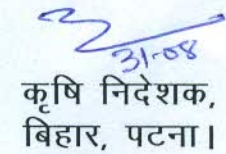 31-08
कृषि निदेशक,
बिहार, पटना।